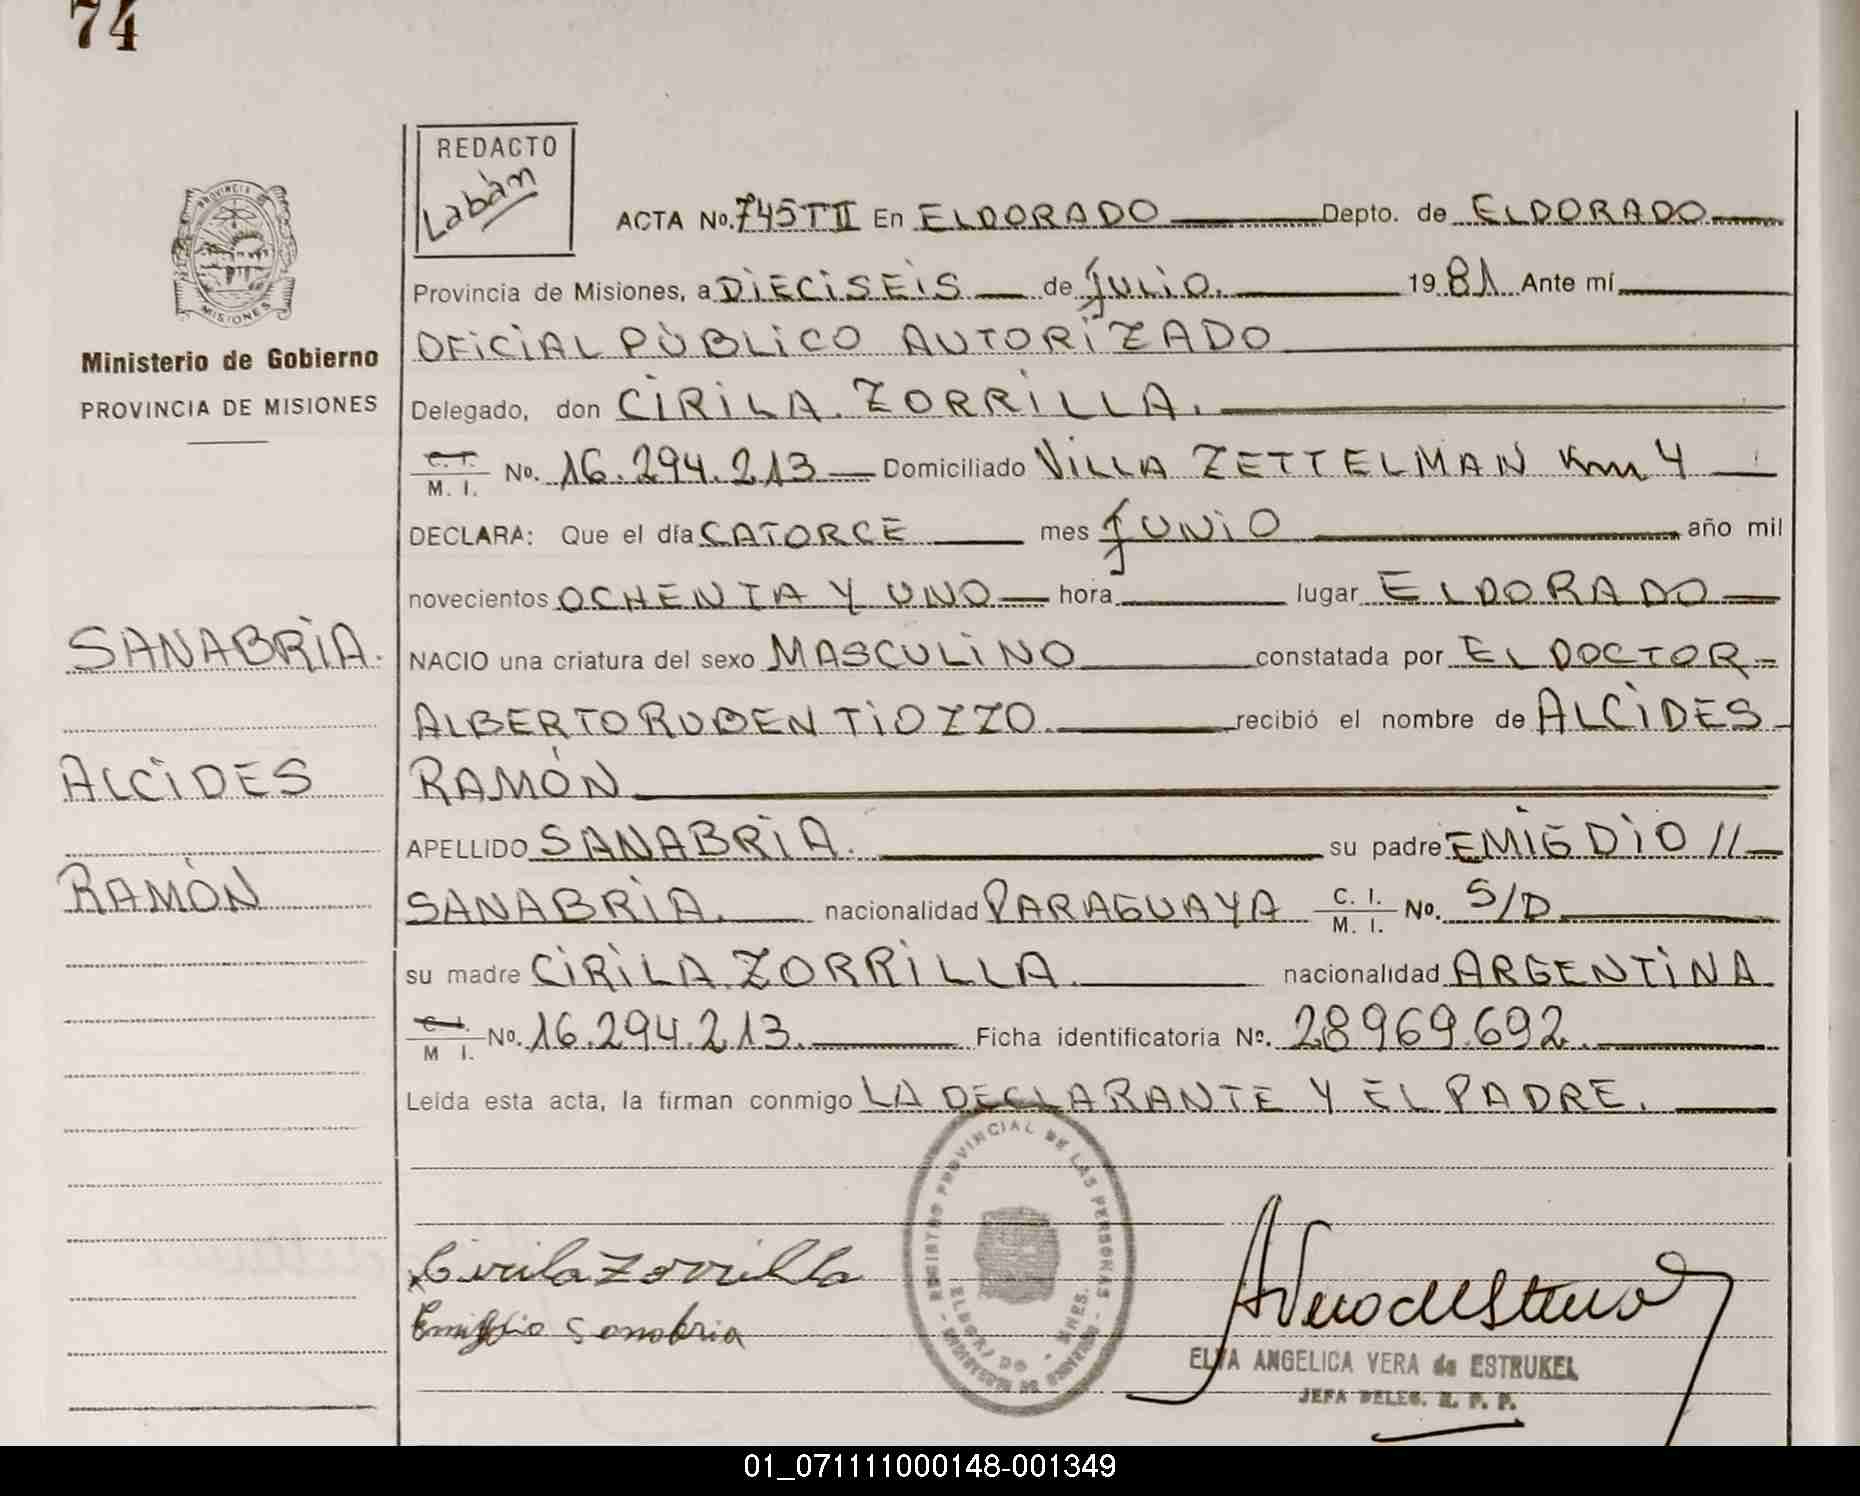 74
REDACTO
Labán
ACTA No. 745 T II En ELDORADO Depto. de ELDORADO
Provincia de Misiones, a DIECISEIS de JULIO. 1981 Ante mí
OFICIAL PÚBLICO AUTORIZADO
Ministerio de Gobierno
PROVINCIA DE MISIONES
Delegado, don CIRILA ZORRILLA.
C. I. / M. I. No. 16.294.213 Domiciliado VILLA ZETTELMAN Km 4
DECLARA: Que el día CATORCE mes JUNIO año mil
novecientos OCHENTA Y UNO hora lugar ELDORADO
SANABRIA.
NACIO una criatura del sexo MASCULINO constatada por EL DOCTOR
ALBERTO RUBEN TIOZZO. recibió el nombre de ALCIDES
ALCIDES
RAMÓN
APELLIDO SANABRIA. su padre EMIGDIO //
RAMÓN
SANABRIA. nacionalidad PARAGUAYA C. I. / M. I. No. S/D
su madre CIRILA ZORRILLA. nacionalidad ARGENTINA
C. I. / M I. No. 16.294.213. Ficha identificatoria Nº. 28969.692.
Leída esta acta, la firman conmigo LA DECLARANTE Y EL PADRE.
REGISTRO PROVINCIAL DE LAS PERSONAS - MINISTERIO DE GOBIERNO -
ELDORADO - MNES.
Cirila Zorrilla
Emigdio Sanabria
ELVA ANGELICA VERA de ESTRUKEL
JEFA DELEG. R. P. P.
PROVINCIA DE
MISIONES
01_071111000148-001349